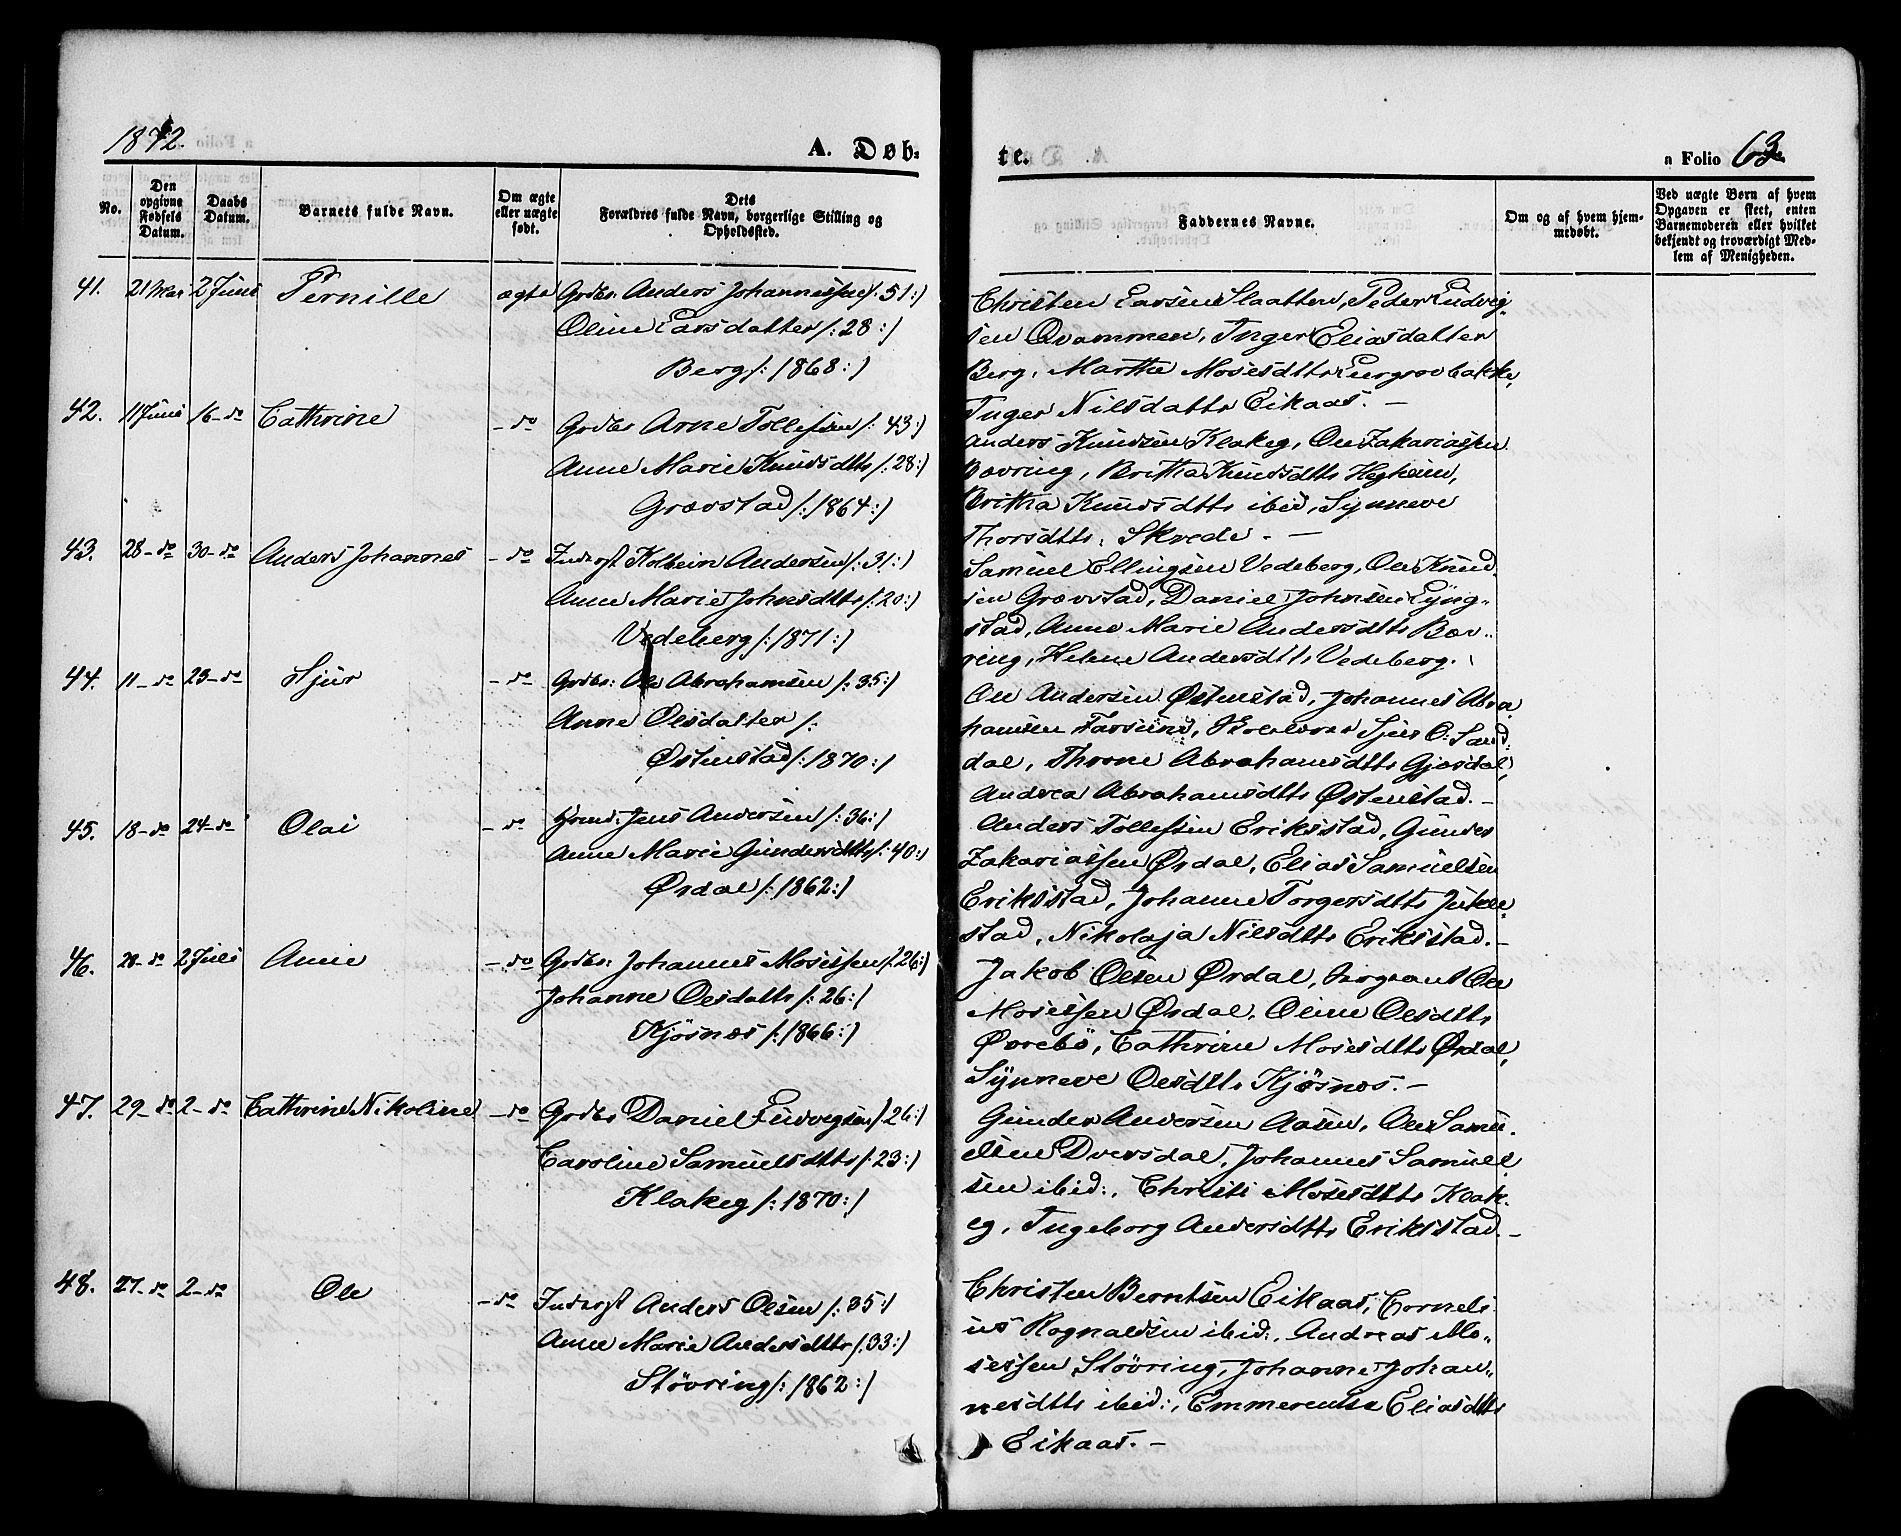 1872.
A. Døb-
te.
a Folio 63.
No.
Den opgivne Fødsels Datum.
Daabs Datum.
Barnets fulde Navn.
Om ægte eller uægte født.
Dets Forældres fulde Navn, borgerlige Stilling og Opholdssted.
Faddernes Navne.
Om og af hvem hjem- medøbt.
Ved uægte Børn af hvem Opgaven er skeet, enten Barnemoderen eller hvilket bekjendt og troværdigt Med- lem af Menigheden.
41. 21 Mai 2 Juni Pernille ægte Grdbr. Anders Johannessen /: 51 :/
Oline Larsdatter /: 28 :/
Berg /: 1868 :/
Christen Larsen Slaatten, Peder Ludvig-
sen Qvammen, Inger Eliasdatter
Berg, Marthe Mosesdttr Lurgrovbakke,
Inger Nilsdattr Eikaas. –
42. 11 Juni 16 – do Cathrine – do Grdbr Arne Tollefsen /: 43 :/
Anne Marie Knudsdttr /: 28 :/
Grovstad /: 1864 :/
Anders Knudsen Klakeg, Ole Zakariassen
Bovring, Britha Knudsdttr Hegheim,
Britha Knudsdttr ibid, Synneve
Thorsdttr. Skrede. –
43. 28 – do 30 – do Anders Johannes – do Inderst Kolbein Andersen /: 31 :/
Anne Marie Johnsdttr /: 20 :/
Vedeberg /: 1871 :/
Samuel Ellingsen Vedeberg, Ole Knud-
sen Grovstad, Daniel Johnsen Lyng-
stad, Anne Marie Andersdttr Bov-
ring, Helene Andersdttr Vedeberg.
44. 11 – do 23 – do Sjur – do Grdbr: Ole Abrahamsen /: 35 :/
Anne Olsdatter /:
Østenstad /: 1870 :/
Ole Andersen Østenstad, Johannes Abra-
hamsen Farsund, Skolelærer Sjur O. Sand-
dal, Thorne Abrahamsdttr Gjesdal,
Andrea Abrahamsdttr Østenstad. –
45. 18 – do 24 – do Olai – do Jens Andersen /: 36 :/
Anne Marie Gundersdttr /: 40 :/
Ørdal /: 1862 :/
Anders Tollefsen Eriksstad, Gunder
Zakariassen Ørdal, Elias Samuelsen
Eriksstad, Johanne Torgersdttr Jukel-
stad, Nikolaja Nilsdttr Eriksstad. –
46. 20 – do 2 Juli Anne – do Grdbr: Johannes Mosessen /: 26 :/
Johanne Olsdattr /: 26 :/
Kjøsnes /: 1866 :/
Jakob Olsen Ørdal, Sergeant Ole
Mosessen Ørdal, Oline Olsdttr
Øvrebø, Cathrine Mosesdttr Ørdal,
Synneve Olsdttr Kjøsnes. –
47. 29 – do 2 – do Cathrine Nikoline – do Grdbr Daniel Ludvigsen /: 26 :/
Caroline Samuelsdttr /: 23 :/
Klakeg /: 1870 :/
Gunder Andersen Aasen, Ole Samu-
elsen Dversdal, Johannes Samuel-
sen ibid:, Christi Mosesdttr Klak-
eg, Ingeborg Andersdttr Eriksstad. –
48. 27 – do 2 – do Ole – do Inderst Anders Olsen /: 35 :/
Anne Marie Andersdttr /: 33 :/
Støvring /: 1862 :/
Christen Berntsen Eikaas, Corneli-
us Rognaldsen ibid:, Andreas Mo-
sessen Støvring, Johanne Johan-
nesdttr ibid:, Emmerentse Eliasdttr
Eikaas. –